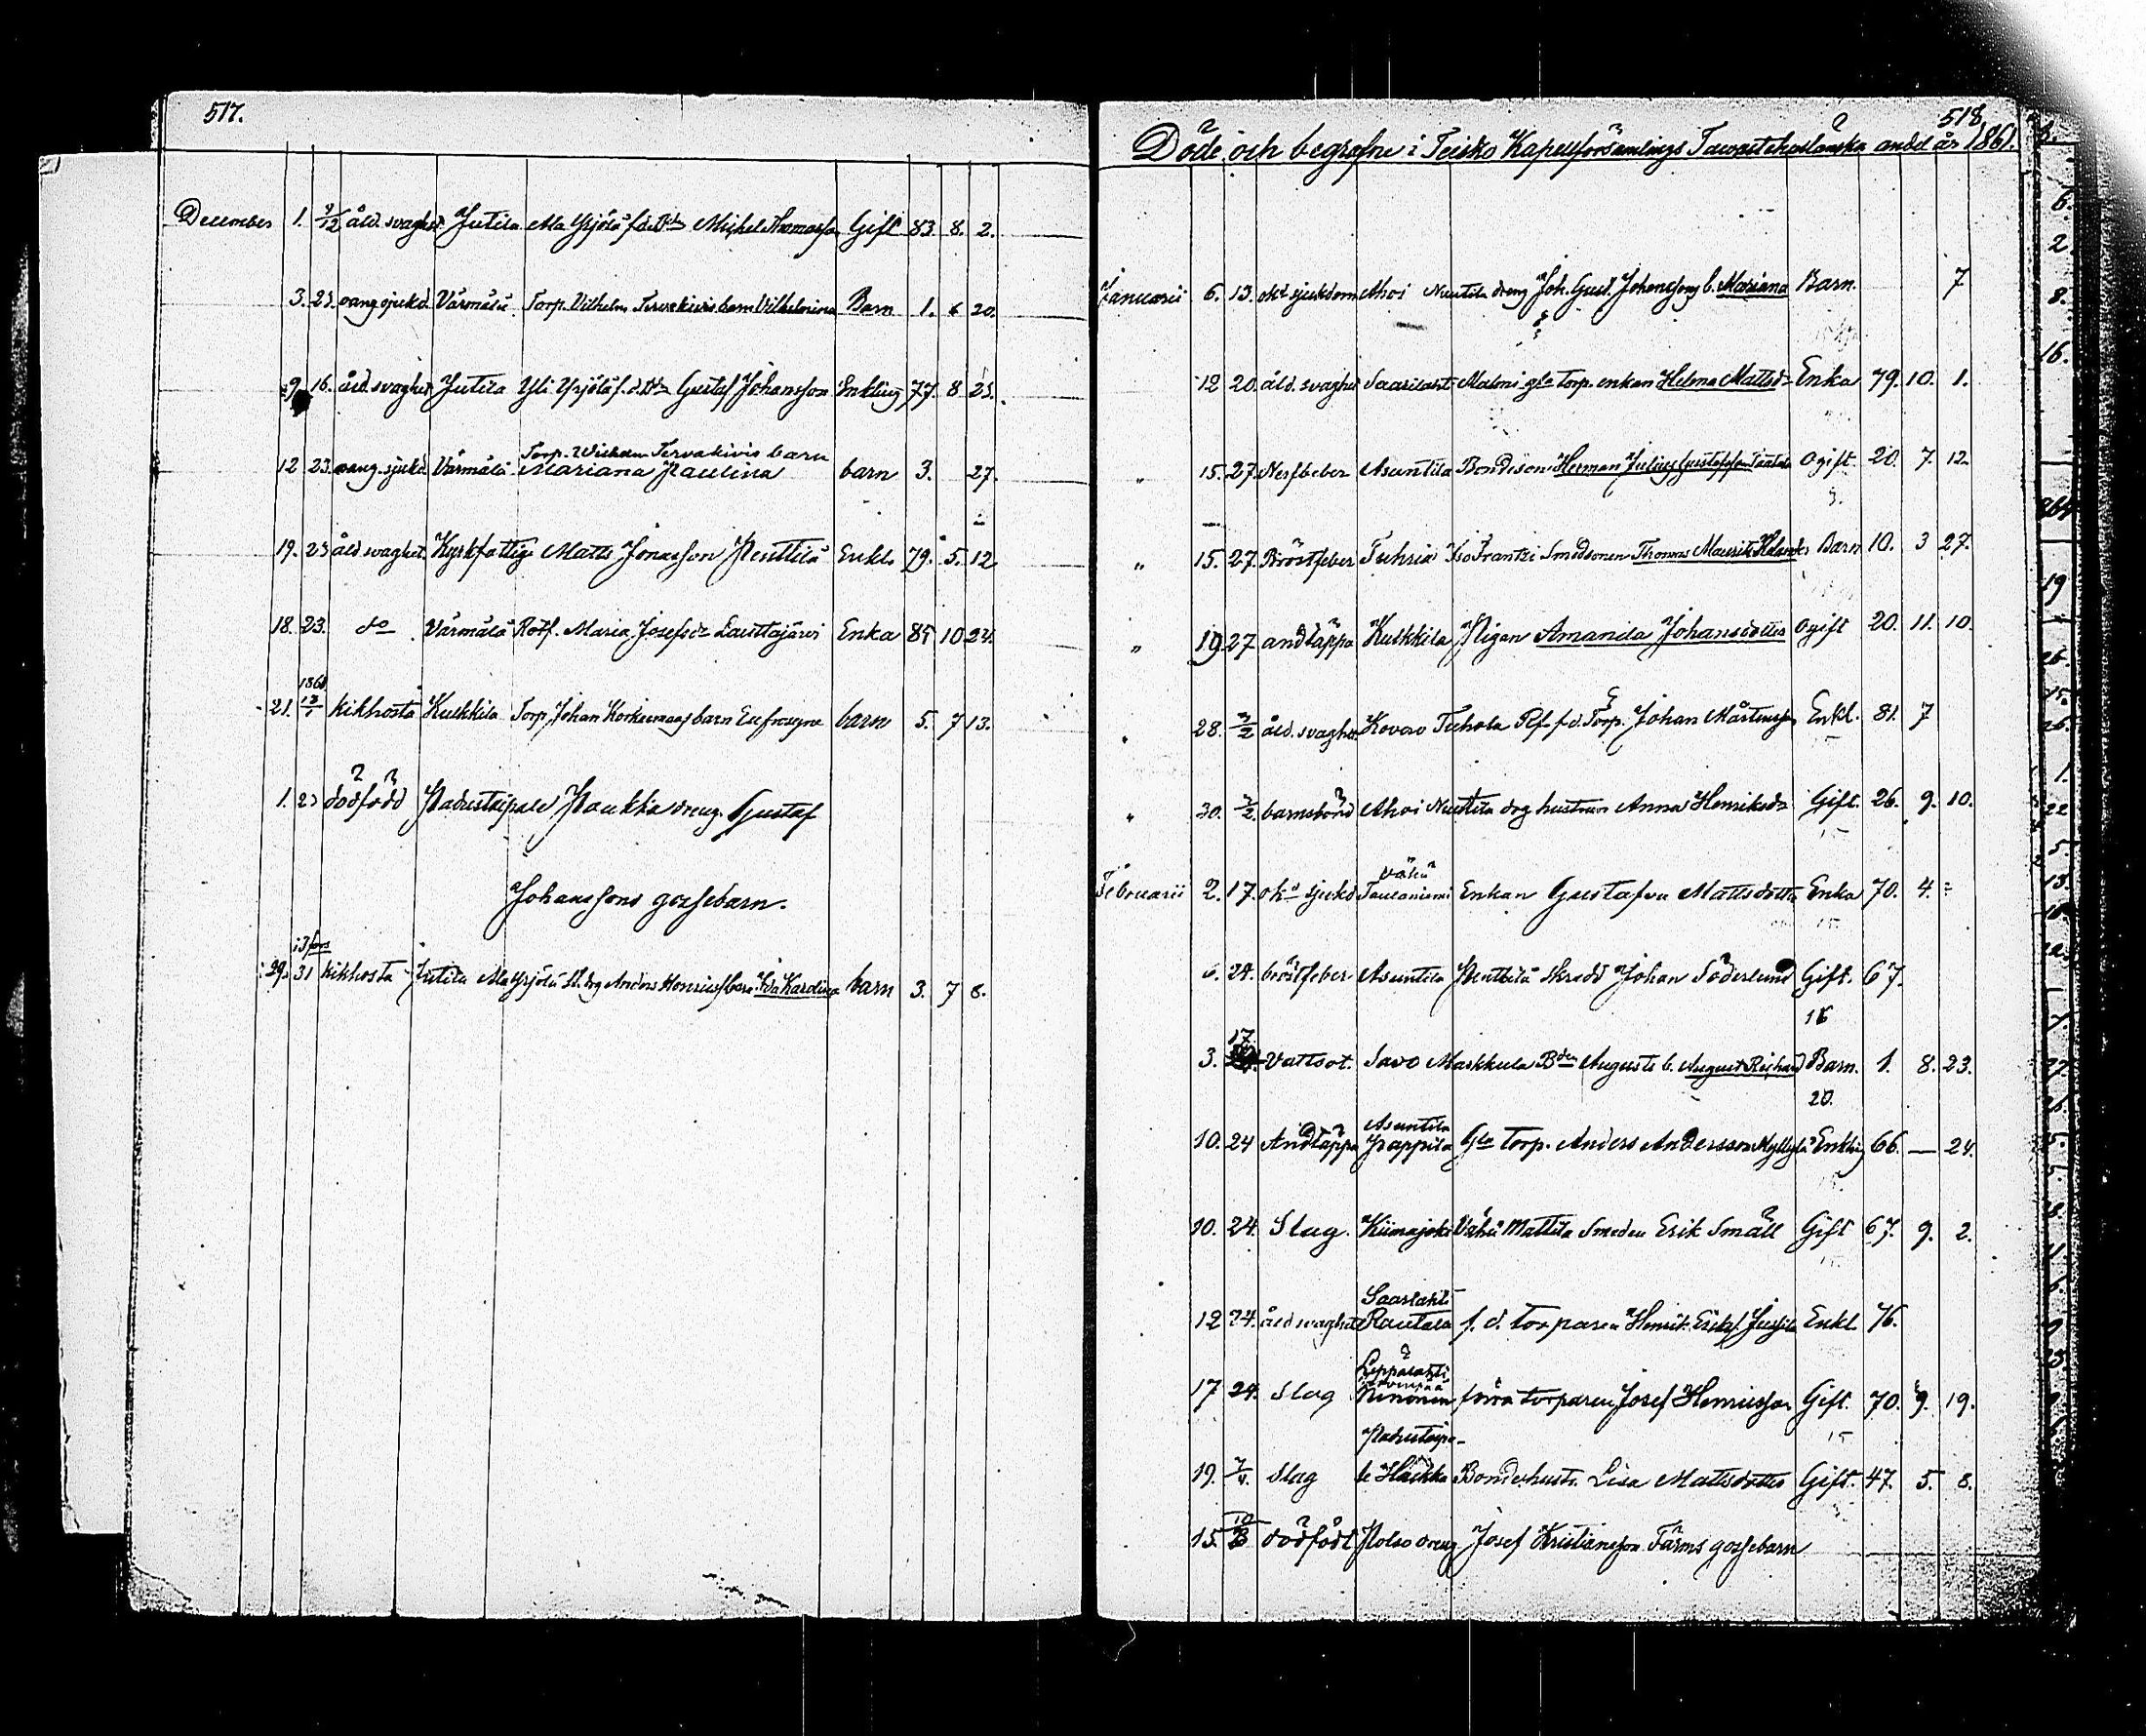 517.
December 1. 9/12 åld. svaghet Jutila Ala Yrjölä f.d. Bdn Michel Thomasson Gift 83. 8. 2.
3. 23. oang sjukd Värmälä Torp. Vilhelm Tervakivis barn Vilhelmina Barn 1. 6 20.
9. 16. åld. svaghet Jutila Yli Yrjölä f.d. Bdn Gustaf Johansson Enkling 77. 8 25.
Torp. Wilhelm Tervakivis barn
12 23. oang. sjukd Värmälä Mariana Paulina barn 3. 27.
19. 23 åld svaghet. Kyrkfattig Matts Jonasson Penttilä Enkl. 79. 5. 12
18. 23. do Värmälä Rotf. Maria Josefsdr Lauttajärvi Enka 85 10 24.
1861
21. 13/1 kikhosta Kulkkila Torp. Johan Korkeemaas barn Eufrosyne barn 5. 7 13.
1. 23 dödfödd Padustaipale Paukka dreng. Gustaf
Johanssons gossebarn.
13 fors
29. 31 kikhosta Jutila Ala Yrjölä drg Anders Henricss barn Ida Karolina barn 3. 7 8.
518
Döde och begrafne i Teisko Kapellförsamlings Tawastehuslänska andel år 1861.
Januarii 6. 13. okd sjukdom Ahoi Nuutila dreng Joh. Gust. Johanssons b. Mariana Barn. 7
12 20. åld. svaghet Saarilaht Malmi gla torp. enkan Helena Mattsdr Enka 79. 10. 1.
" 15. 27. Nerffeber Asuntila Bondeson Herman Julius Gustafsson Ogift 20. 7. 12.
" 15. 27. Bröstfeber Tuhria Iso Frantsi Smedsonen Thomas Maurits Helander Barn 10. 3 27.
" 19 27 andtäppa Kulkkila Pigan Amanda Johansdotter Ogift 20. 11. 10.
" 28. 3/2 åld. svaghet Kovero Tuhola Rf. f.d. Torp. Johan Mårtensson Enkl. 81. 7
" 30. 3/2 barnsbörd Ahoi Nuutila drg hustrun Anna Henriksdr Gift 26. 9. 10.
Vähä
Februarii 2. 17. okd sjukd Taulaniemi Enkan Gustafva Mattsdotter Enka 70. 4.
6. 24. bröstfeber Asuntila Penttilä skredd Johan Söderlund Gift. 67.
16
17.
3. Vattsot. Savo Markkula Bden Augusts b. August Richard Barn. 1. 8. 23.
20.
Asuntila
10. 24 Andtäppa Pappila Gla torp. Anders Andersson Myllylä Enkling 66. — 24.
10. 24. Slag. Kiimajoki Vähä Mattila Smeden Erik Småll Gift 67. 9. 2.
Saarlahti
12 24. åld svaghet Rautala f. d. torparen Henrik Eriks. Jussila Enkl. 76.
Leppälahti
17 24. Slag förra torparen Josef Henricsson Gift. 70. 9. 19.
Padustaipa-
19. 7/4. Slag le Haikka Bondehustr. Lisa Mattsdotter Gift. 47. 5. 8.
15. dödfödt Polso dreng Josef Kristiansson Färms gossebarn